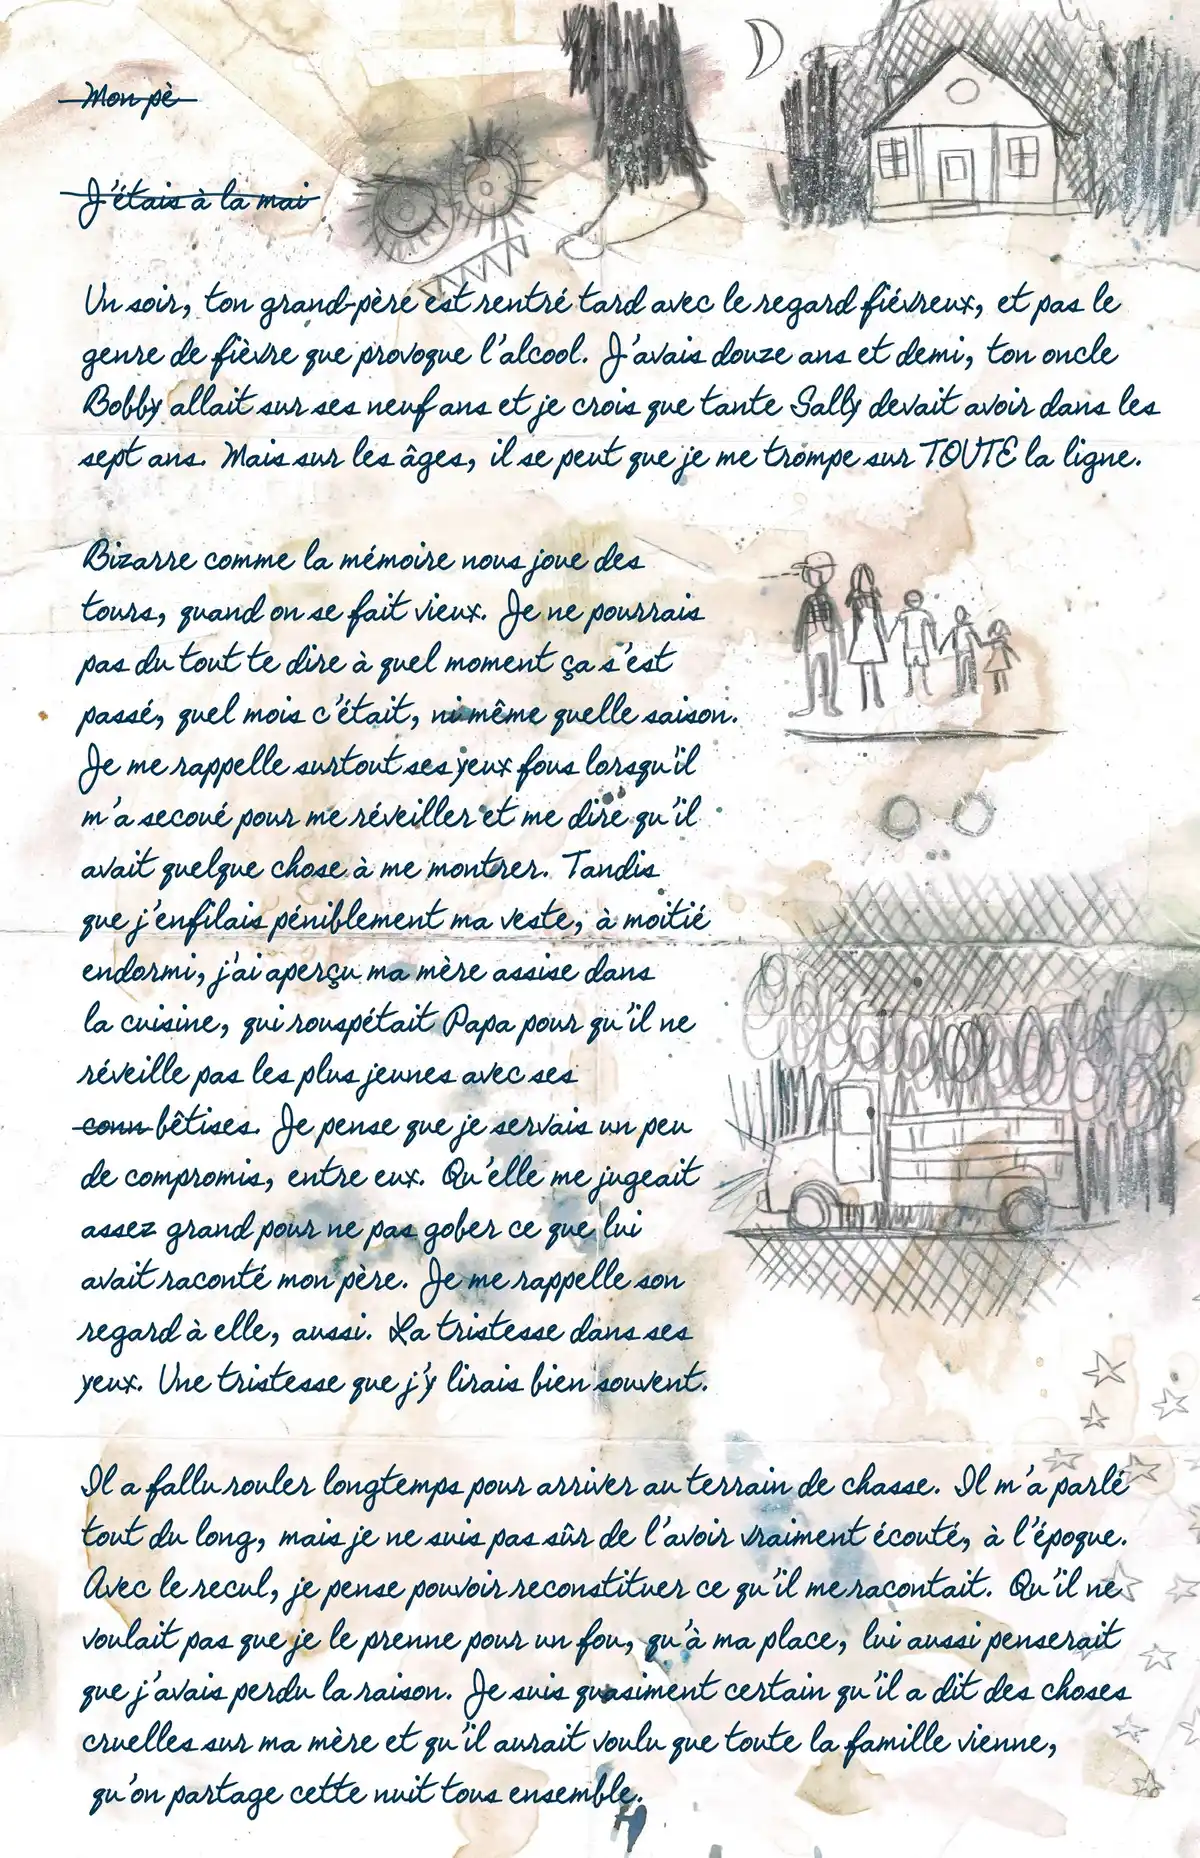 Mon pè
J'étais à la mai
Un soir, ton grand-père est rentré tard avec le regard fiévreux, et pas le
genre de fièvre que provoque l'alcool. J'avais douze ans et demi, ton oncle
Bobby allait sur ses neuf ans et je crois que tante Sally devait avoir dans les
sept ans. Mais sur les âges, il se peut que je me trompe sur TOUTE la ligne.
Bizarre comme la mémoire nous joue des
tours, quand on se fait vieux. Je ne pourrais
pas du tout te dire à quel moment ça s'est
passé, quel mois c'était, ni même quelle saison.
Je me rappelle surtout ses yeux fous lorsqu'il
m'a secoué pour me réveiller et me dire qu'il
avait quelque chose à me montrer. Tandis
que j'enfilais péniblement ma veste, à moitié
endormi, j'ai aperçu ma mère assise dans
la cuisine, qui rouspétait Papa pour qu'il ne
réveille pas les plus jeunes avec ses
conn bêtises. Je pense que je servais un peu
de compromis, entre eux. Qu'elle me jugeait
assez grand pour ne pas gober ce que lui
avait raconté mon père. Je me rappelle son
regard à elle, aussi. La tristesse dans ses
yeux. Une tristesse que j'y lirais bien souvent.
Il a fallu rouler longtemps pour arriver au terrain de chasse. Il m'a parlé
tout du long, mais je ne suis pas sûr de l'avoir vraiment écouté, à l'époque.
Avec le recul, je pense pouvoir reconstituer ce qu'il me racontait. Qu'il ne
voulait pas que je le prenne pour un fou, qu'à ma place, lui aussi penserait
que j'avais perdu la raison. Je suis quasiment certain qu'il a dit des choses
cruelles sur ma mère et qu'il aurait voulu que toute la famille vienne,
qu'on partage cette nuit tous ensemble.